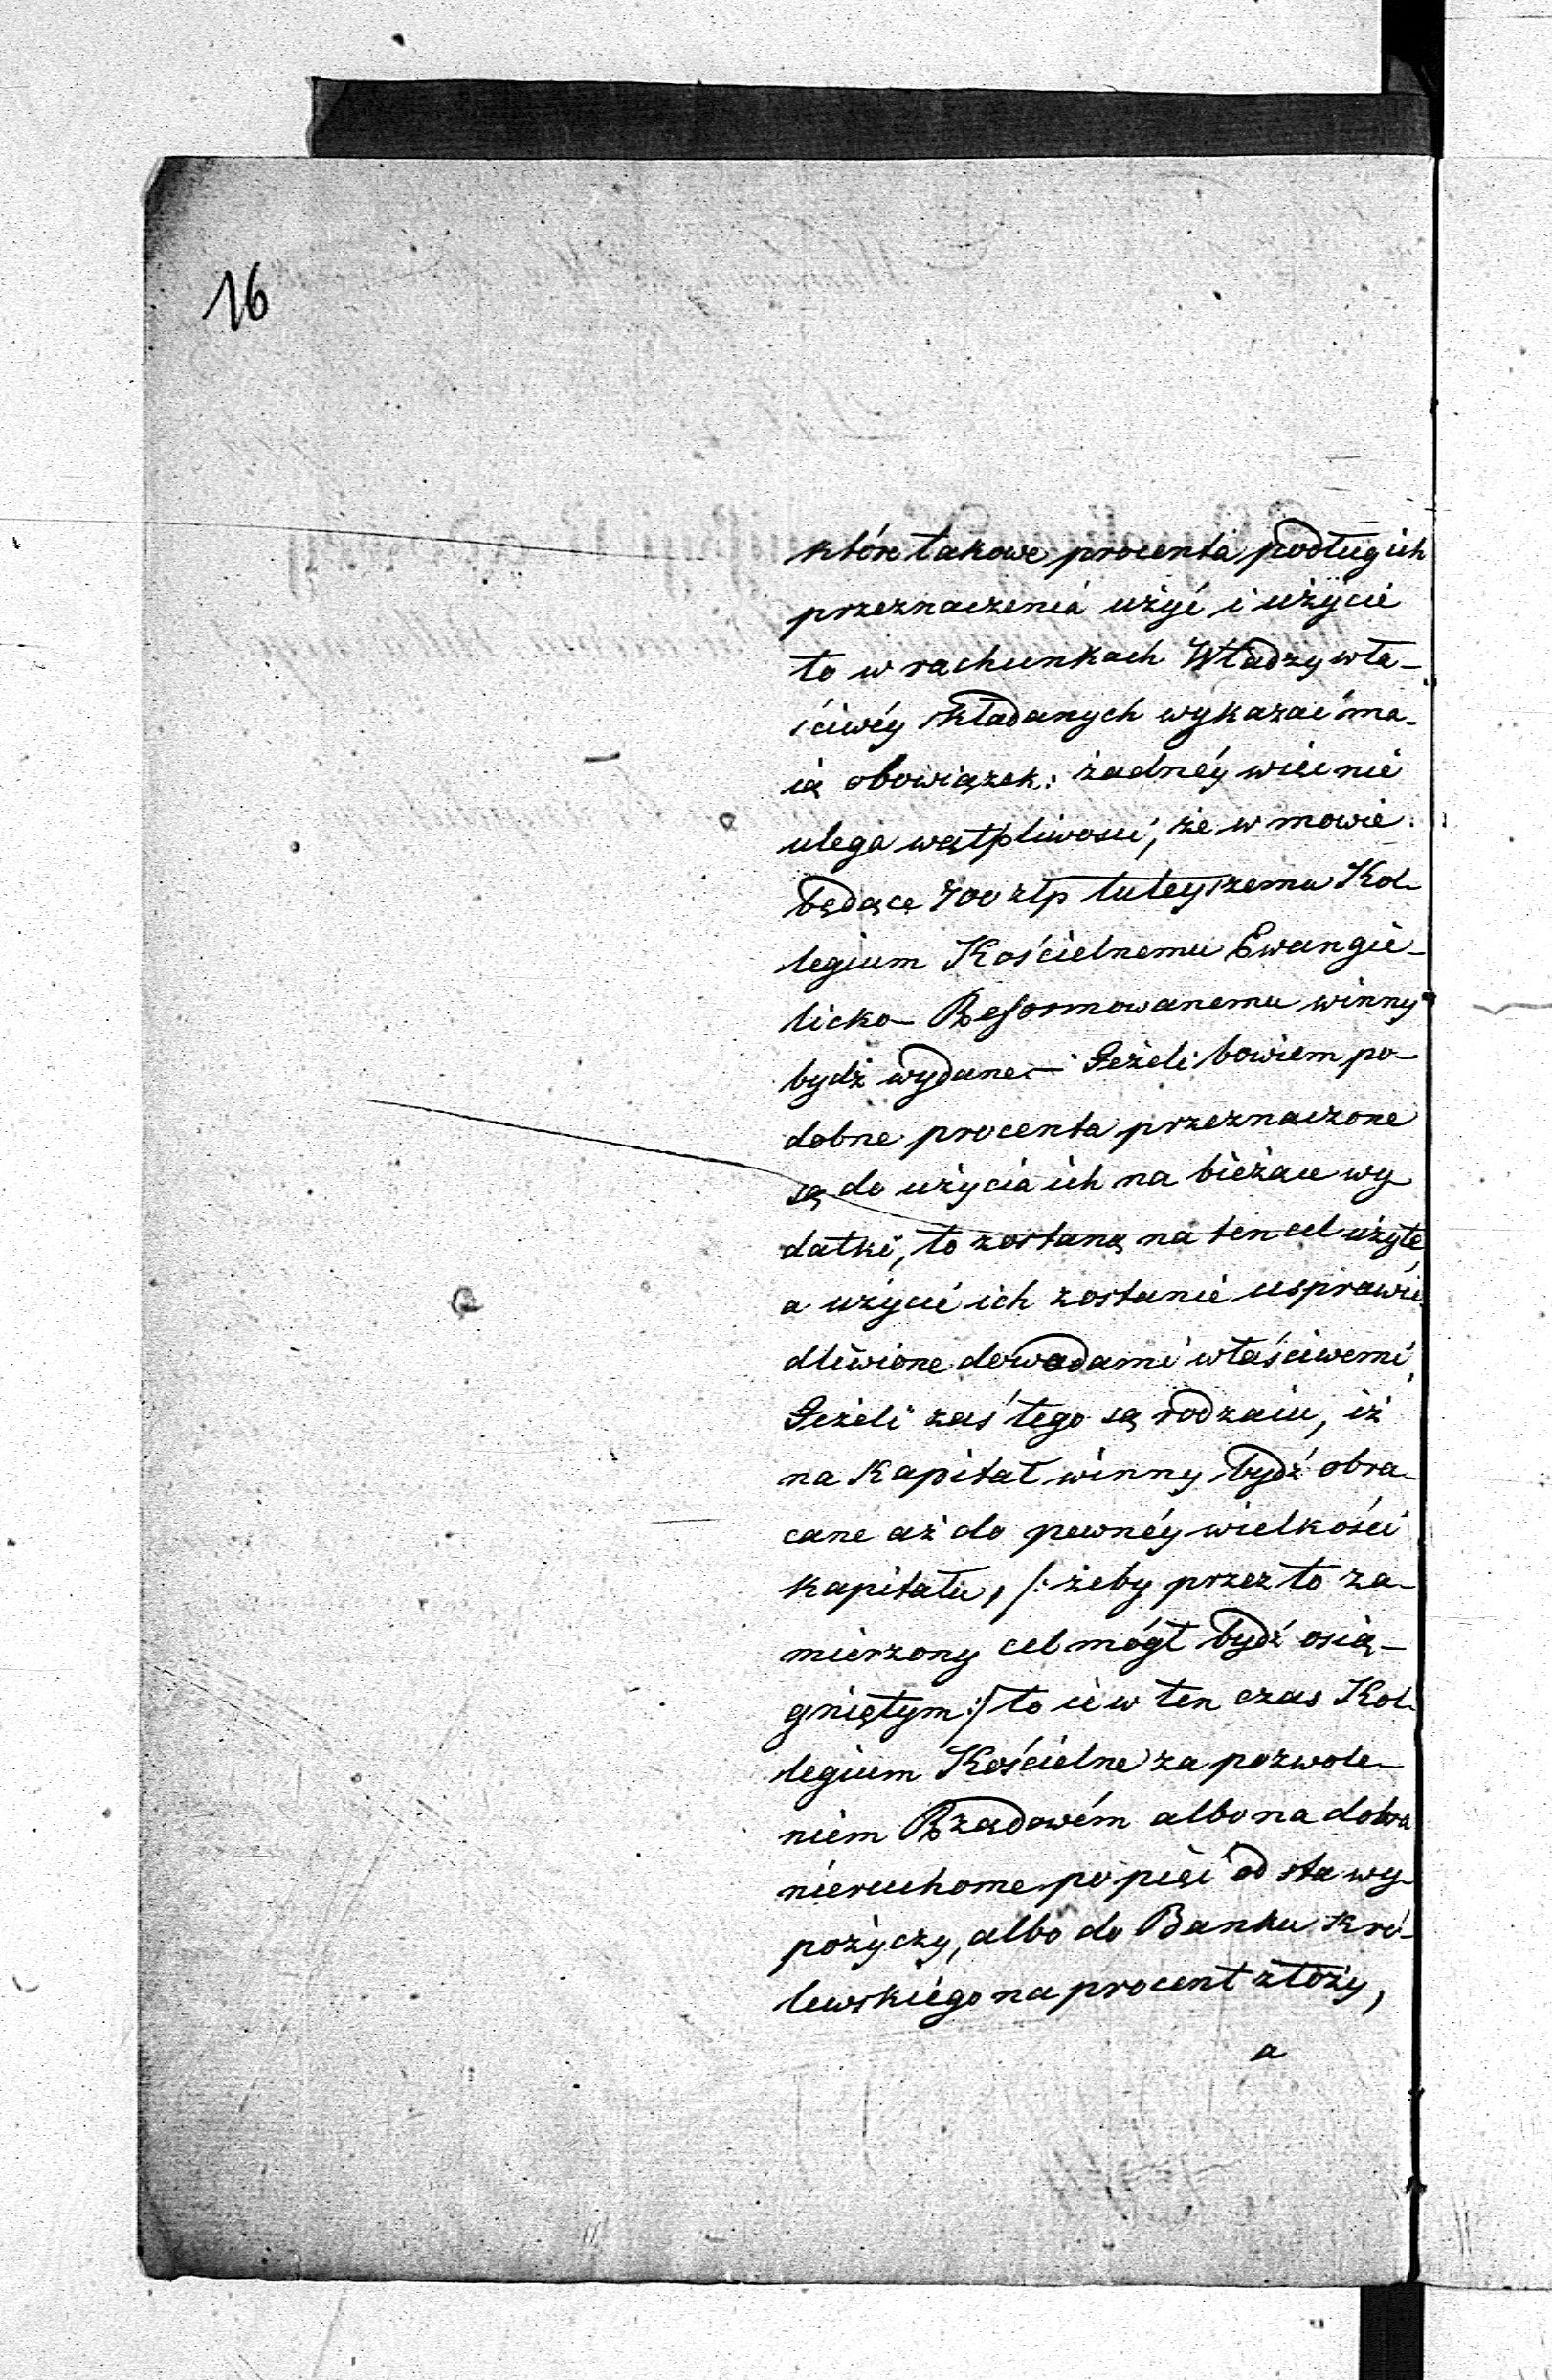 16
które takowe procenta podług ich
przeznaczenia użyć i użycie
to w rachunkach Władzy wła-
ściwéy składanych wykazać ma-
ią obowiązek: żadnéy więc nie
ulega wątpliwości, że w mowie
będące 700 złp tuteyszemu Kol-
legium Kościelnemu Ewangie-
licko-Reformowanemu winny
bydź wydane.— Jeżeli bowiem po-
dobne procenta przeznaczone
są do użycia ich na bieżące wy-
datki, to zostaną na ten cel użyte,
a użycie ich zostanie usprawie-
dliwione dowodami właściwemi.
Jeżeli zaś tego są rodzaiu, iż
na Kapitał winny bydź obra-
cane aż do pewnéy wielkości
Kapitału, /: żeby przez to za-
mierzony cel mógł bydź osią-
gniętym :/ to ie w ten czas Kol-
legium Kościelne za pozwole-
niem Rządowém albo na dobra
nieruchome po pięć od sta wy-
pożyczy, albo do Banku Kró-
lewskiégo na procent złoży,
a